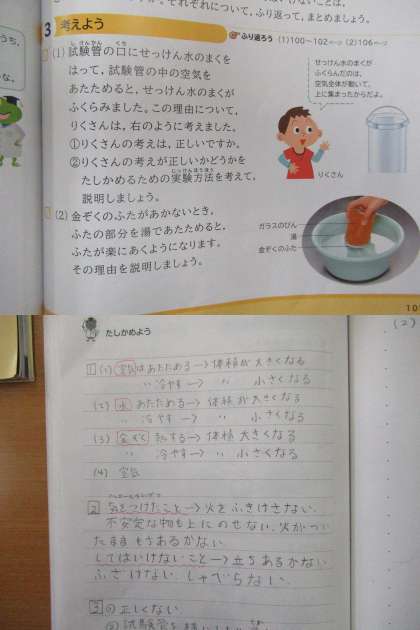 それぞれについて，ふり返って，まとめましょう。
3 考えよう
ふり返ろう (1)100～102ページ (2)106ページ
(1)試験管の口にせっけん水のまくを
はって，試験管の中の空気を
あたためると，せっけん水のまくが
ふくらみました。この理由について，
りくさんは，右のように考えました。
①りくさんの考えは，正しいですか。
②りくさんの考えが正しいかどうかを
たしかめるための実験方法を考えて，
説明しましょう。
せっけん水のまくが
ふくらんだのは，
空気全体が動いて，
上に集まったからだよ。
りくさん
(2)金ぞくのふたがあかないとき，
ふたの部分を湯であたためると，
ふたが楽にあくようになります。
その理由を説明しましょう。
ガラスのびん
湯
金ぞくのふた
たしかめよう
(2)
1 (1) 空気はあたためる→体積が大きくなる
〃 冷やす→ 〃 小さくなる
(2) 水 あたためる→体積が大きくなる
〃 冷やす→ 〃 小さくなる
(3) 金ぞく 熱する→体積 大きくなる
冷やす→ 〃 小さくなる
(4) 空気
2 気をつけたこと→火をふきけさない。
不安定な物も上にのせない。火がつい
たままもちあるかない。
してはいけないこと→立ちあるかない
ふざけない。しゃべらない。
3 ① 正しくない
② 試験管を